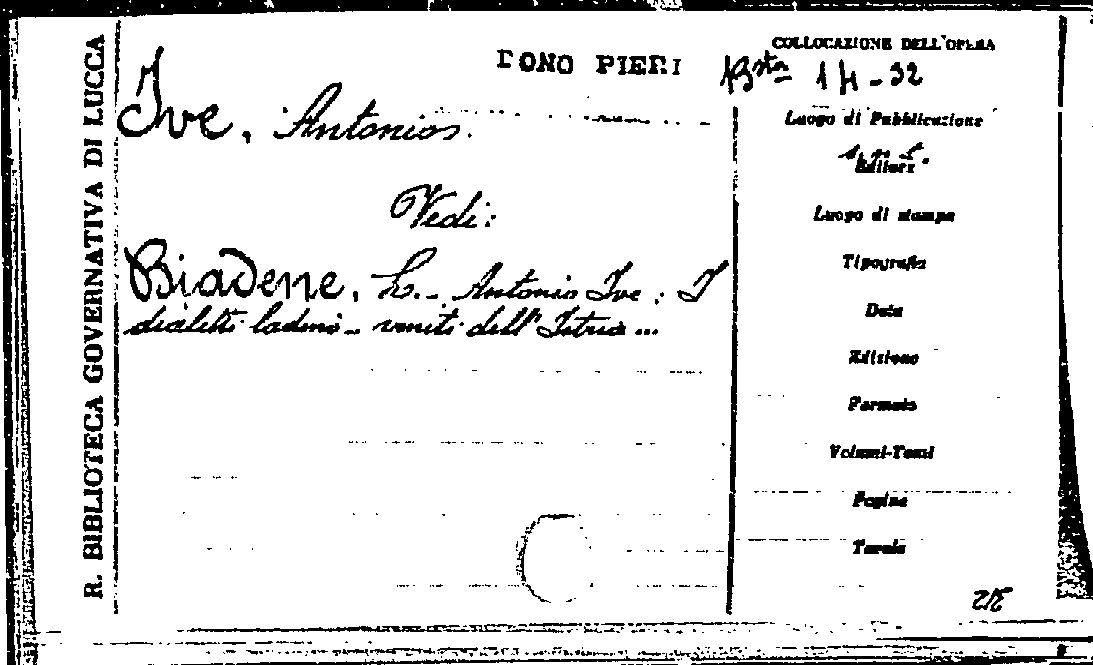 R. BIBLIOTECA GOVERNATIVA DI LUCCA
DONO PIERI
COLLOCAZIONE DELL'OPERA
Bsta 14-32
Ive, Antonio.
Vedi:
Biadene, L. - Antonio Ive: I
dialetti ladino-veneti dell'Istria...
Luogo di Pubblicazione
s.n.t.
Editore
Luogo di stampa
Tipografia
Data
Edizione
Formato
Volumi-Tomi
Pagine
Tavole